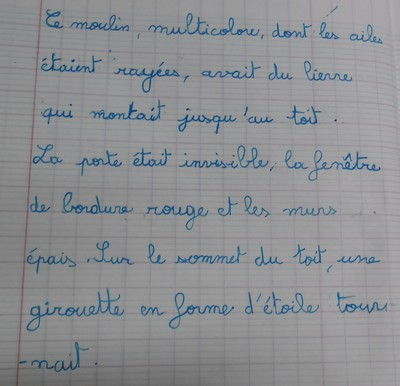 Le moulin, multicolore, dont les ailes
étaient rayées, avait du lierre
qui montait jusqu'au toit..
La porte était invisible, la fenêtre
de bordure rouge et les murs ...
épais. Sur le sommet du toit, une
girouette en forme d'étoile tour-
-nait.